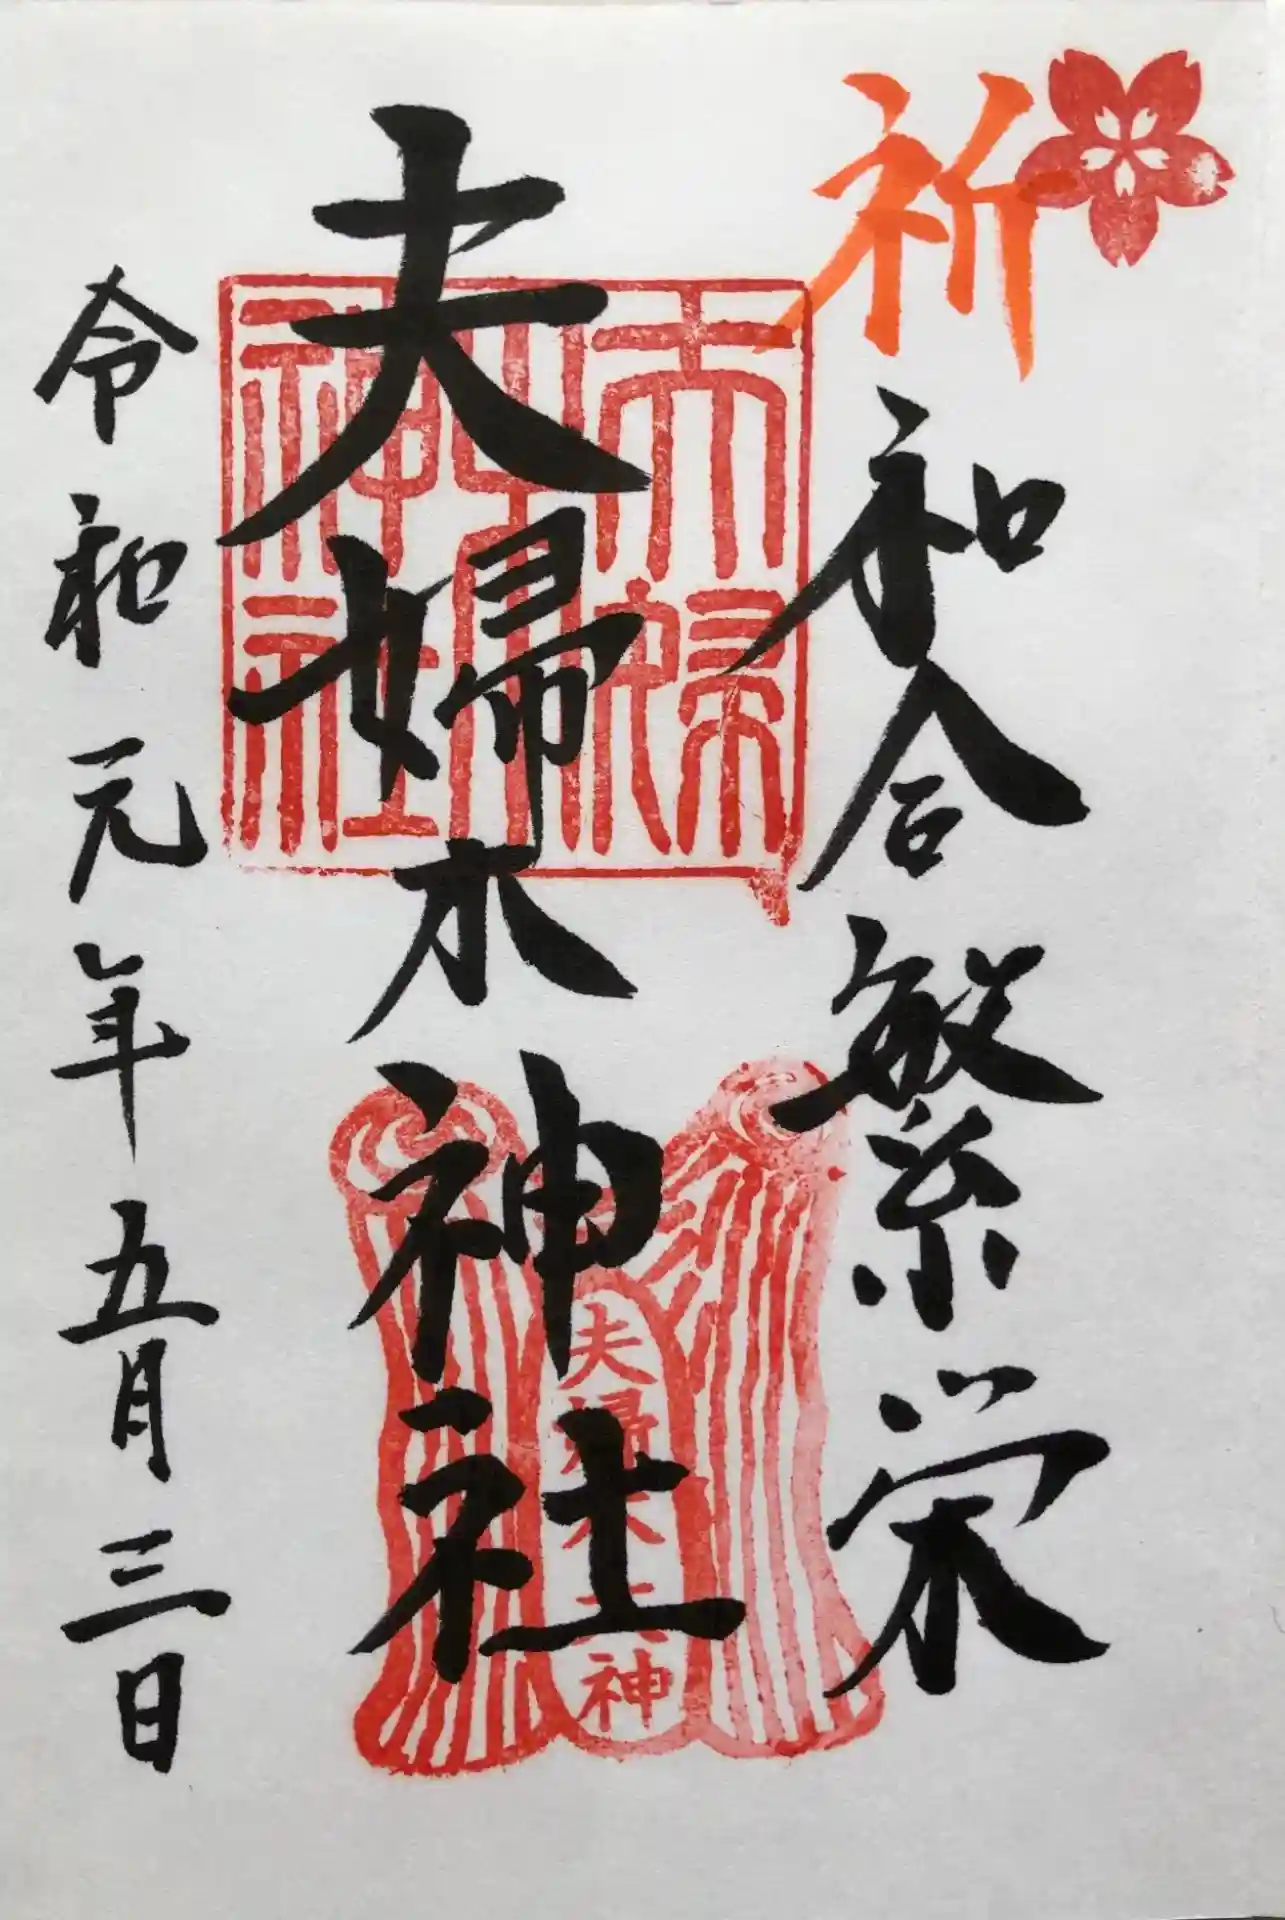 祈
和合繁栄
夫婦木神社
夫婦木神社
夫婦木大神
令和元年五月三日